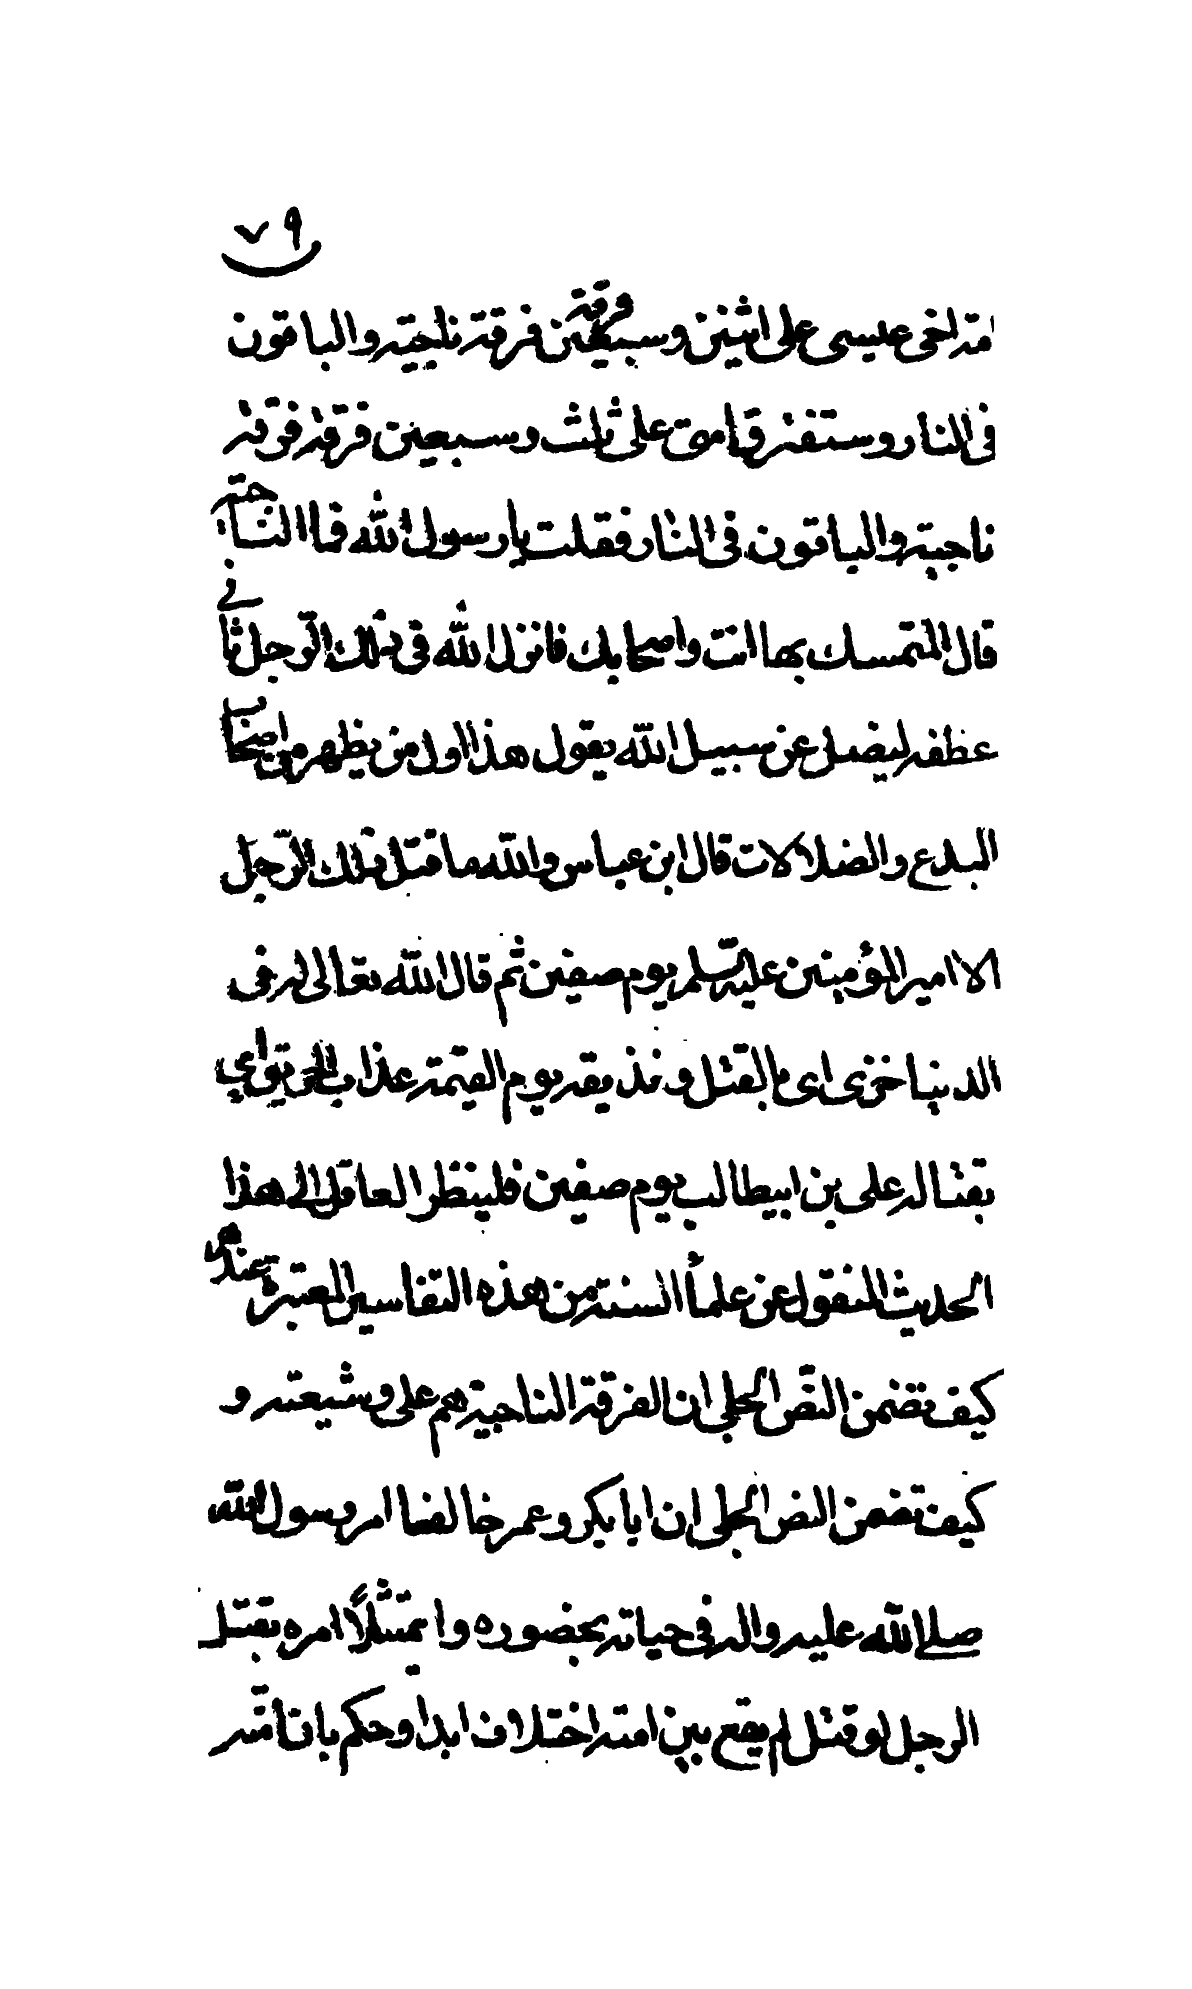 ٧٩
امة اخى عيسى على اثنين وسبعين فرقة فرقة ناجية والباقون
فى النار وستفترق امتى على ثلث وسبعين فرقة فرقة
ناجية والباقون فى النار فقلت يا رسول الله فما الناجية
قال المتمسك بها انت واصحابك فانزل الله فى ذلك الرجل ثانى
عطفه ليضل عن سبيل الله يقول هذا اول من يظهر من اصحاب
البدع والضلالات قال ابن عباس والله ما قتل ذلك الرجل
الا امير المؤمنين عليه السلم يوم صفين ثم قال الله تعالى له فى
الدنيا خزى اى بالقتل ونذيقه يوم القيمة عذاب الحريق اى
بقتاله على بن ابيطالب يوم صفين فلينظر العاقل الى هذا
الحديث المنقول عن علمأ السنة من هذه التفاسير المعتبرة عندهم
كيف تضمن النص الجلى ان الفرقة الناجية هم على وشيعته و
كيف تضمن النص الجلى ان ابا بكر وعمر خالفا امر رسول الله
صلى الله عليه واله فى حياته بحضوره وا يمتثلاً امره بقتل
الرجل لو قتل لم يقع بين امته اختلاف ابدا وحكم بان امته